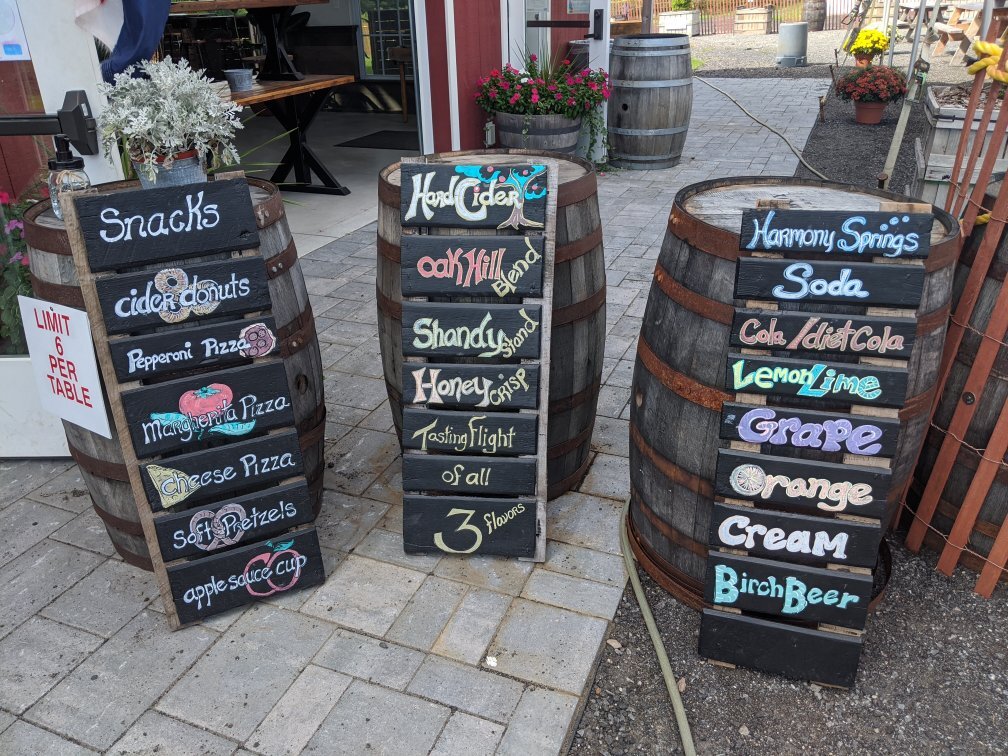 Snacks
cider donuts
Pepperoni Pizza
margherita Pizza
cheese Pizza
Soft Pretzels
apple sauce cup
LIMIT
6
PER
TABLE
Hard Cider
Oak Hill Blend
Shandy Stand
Honey CRISP
Tasting Flight
of all
3 flavors
Harmony Springs
Soda
Cola/diet Cola
Lemon Lime
Grape
Orange
Cream
Birch Beer